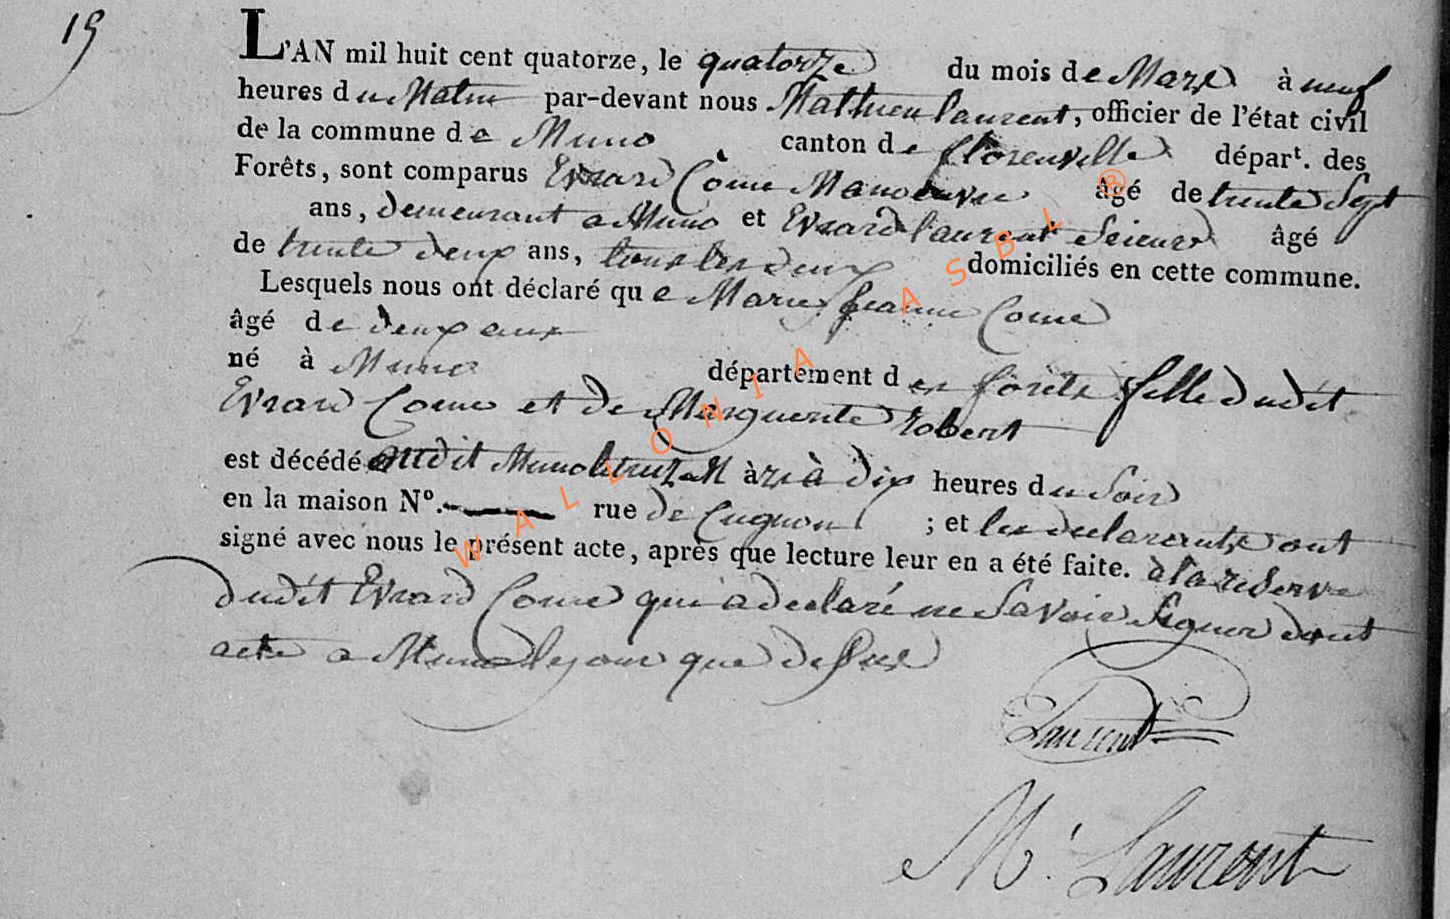 15
L'AN mil huit cent quatorze, le quatorze du mois de Mars à neuf
heures du Matin par-devant nous Mathieu laurent, officier de l'état civil
de la commune de Muno canton de florenville départ. des
Forêts, sont comparus Evrard Come Manoeuvre âgé de trente Sept
ans, demeurant a Muno et Evrard laurent Scieur âgé
de trente deux ans, tous les deux domiciliés en cette commune.
Lesquels nous ont déclaré que Marie jeanne Come
âgé de deux ans
né à Muno département des forêts fille dudit
Evrard Come et de Marguerite robert
est décédé audit Muno le treize Mars à dix heures du Soir
en la maison N°. rue de Cugnon ; et les declarants ont
signé avec nous le présent acte, après que lecture leur en a été faite. à la reserve
dudit Evrard Come qui a declaré ne Savoir Signer dont
acte a Muno le jour que dessus
Laurent
M. Laurent
WALLONIA ASBL ®